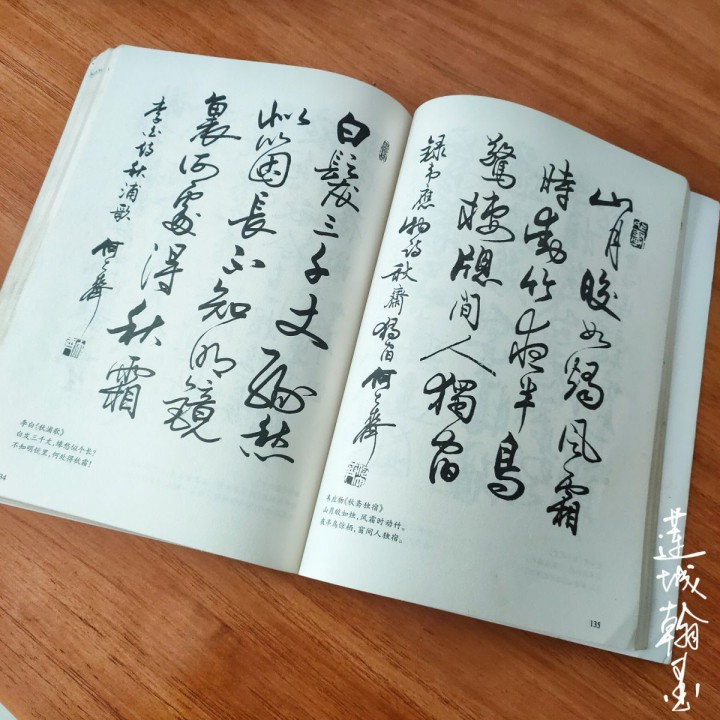 白髮三千丈緣愁
似個長不知明鏡
裏何處得秋霜
李白詩秋浦歌 何
李白《秋浦歌》
白发三千丈，缘愁似个长？
不知明镜里，何处得秋霜！
34
山月皎如燭風霜
時動竹夜半鳥
驚棲牕間人獨宿
錄韋應物詩秋齋獨宿 何
韦应物《秋斋独宿》
山月皎如烛，风霜时动竹。
夜半鸟惊栖，窗间人独宿。
135
莲城翰墨